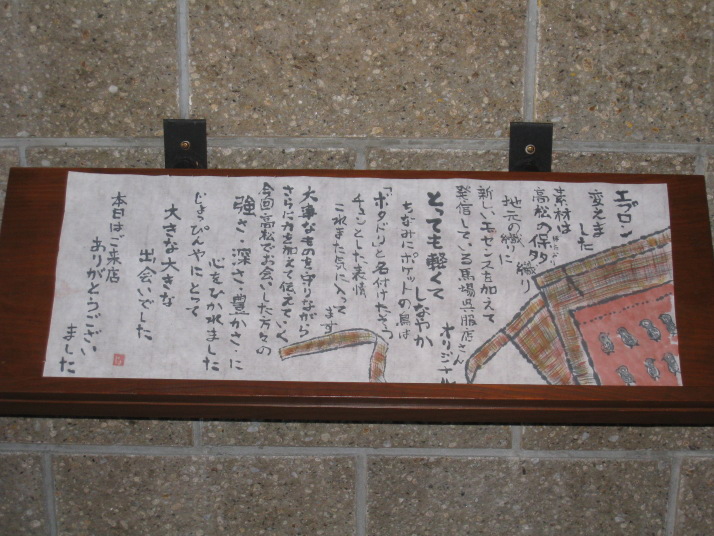 エプロン
変えま
した
素材は
高松の保多織り
ほたおり
地元の織りに
新しいエッセンスを加えて
発信している馬場呉服店さん
オリジナル
とっても軽くて
しなやか
ちなみにポケットの鳥は
「ボタドリ」と名付けたそう
チョンとした表情
これまた気に入って
ます
大事なものを守りながら
さらに力を加えて伝えていく
今回高松でお会いした方々の
強さ・深さ・豊かさ・に
心をひかれました
じょっぴんやにとって
大きな大きな
出会いでした
本日はご来店
ありがとうござい
ました